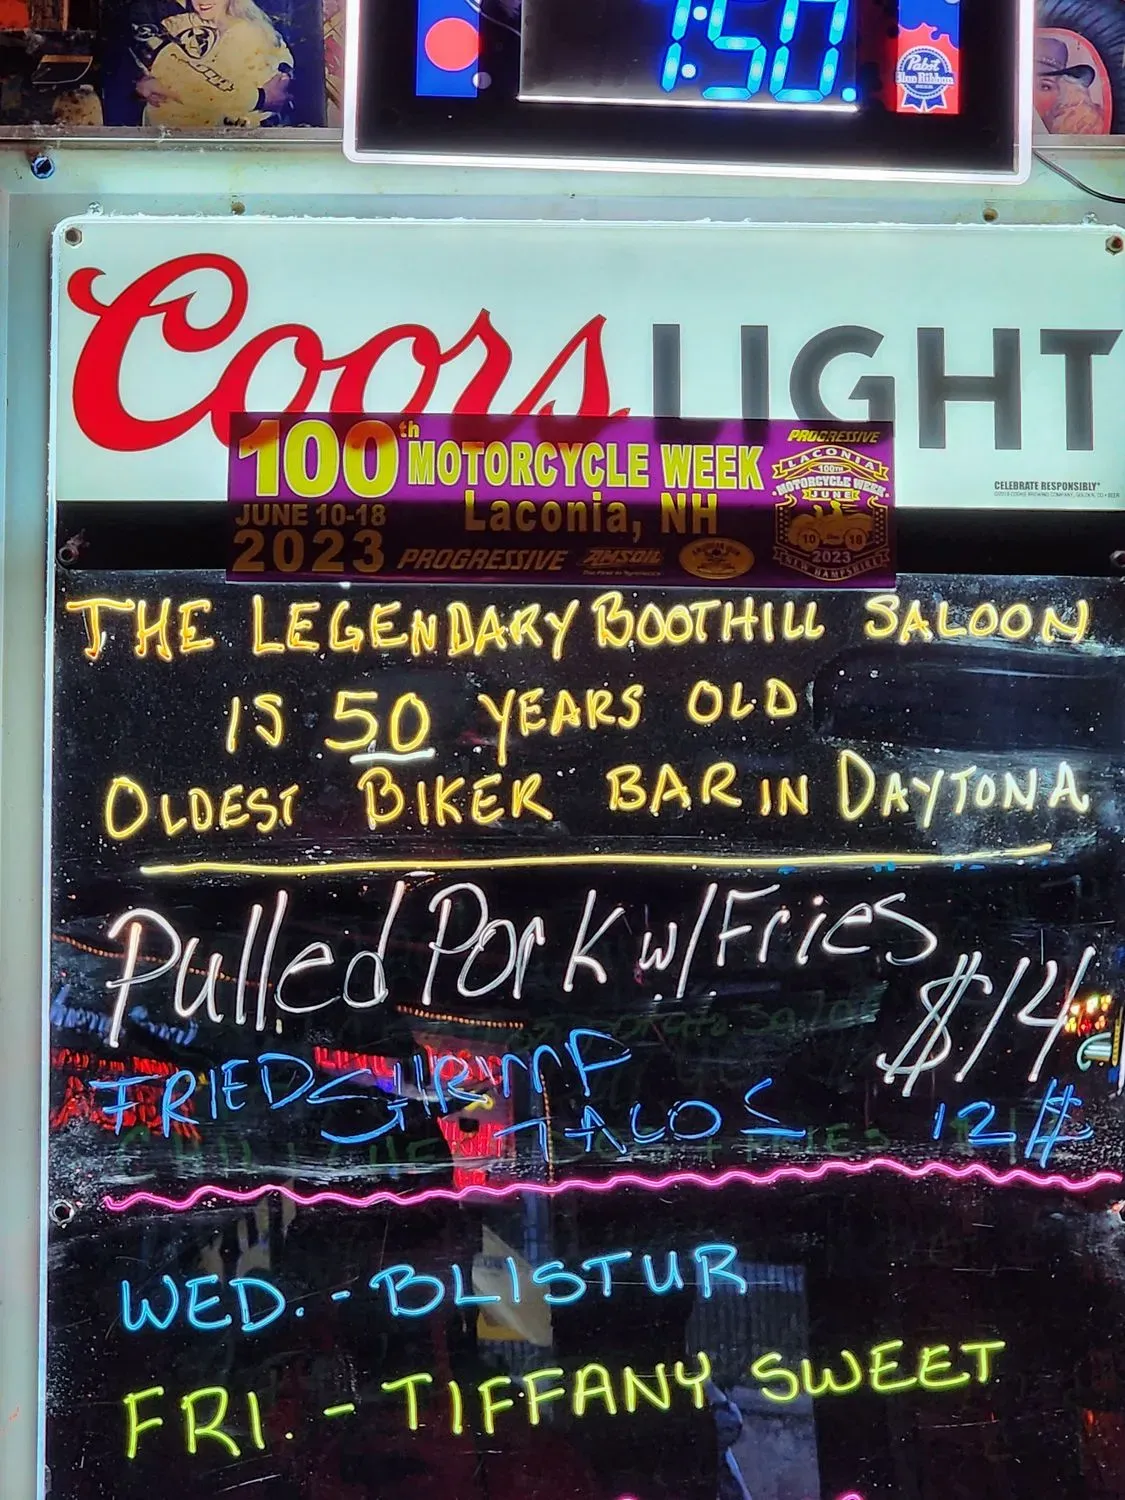 7:50
Pabst
Blue Ribbon
Coors LIGHT
CELEBRATE RESPONSIBLY
100th MOTORCYCLE WEEK
Laconia, NH
JUNE 10-18
2023 PROGRESSIVE AMSOIL
PROGRESSIVE
LACONIA
100TH
MOTORCYCLE WEEK
JUNE
10 18
2023
NEW HAMPSHIRE
THE LEGENDARY BOOTHILL SALOON
IS 50 YEARS OLD
OLDEST BIKER BAR IN DAYTONA
Pulled Pork w/Fries
$14
FRIED SHRIMP
TACOS 12$
WED. - BLISTUR
FRI. - TIFFANY SWEET